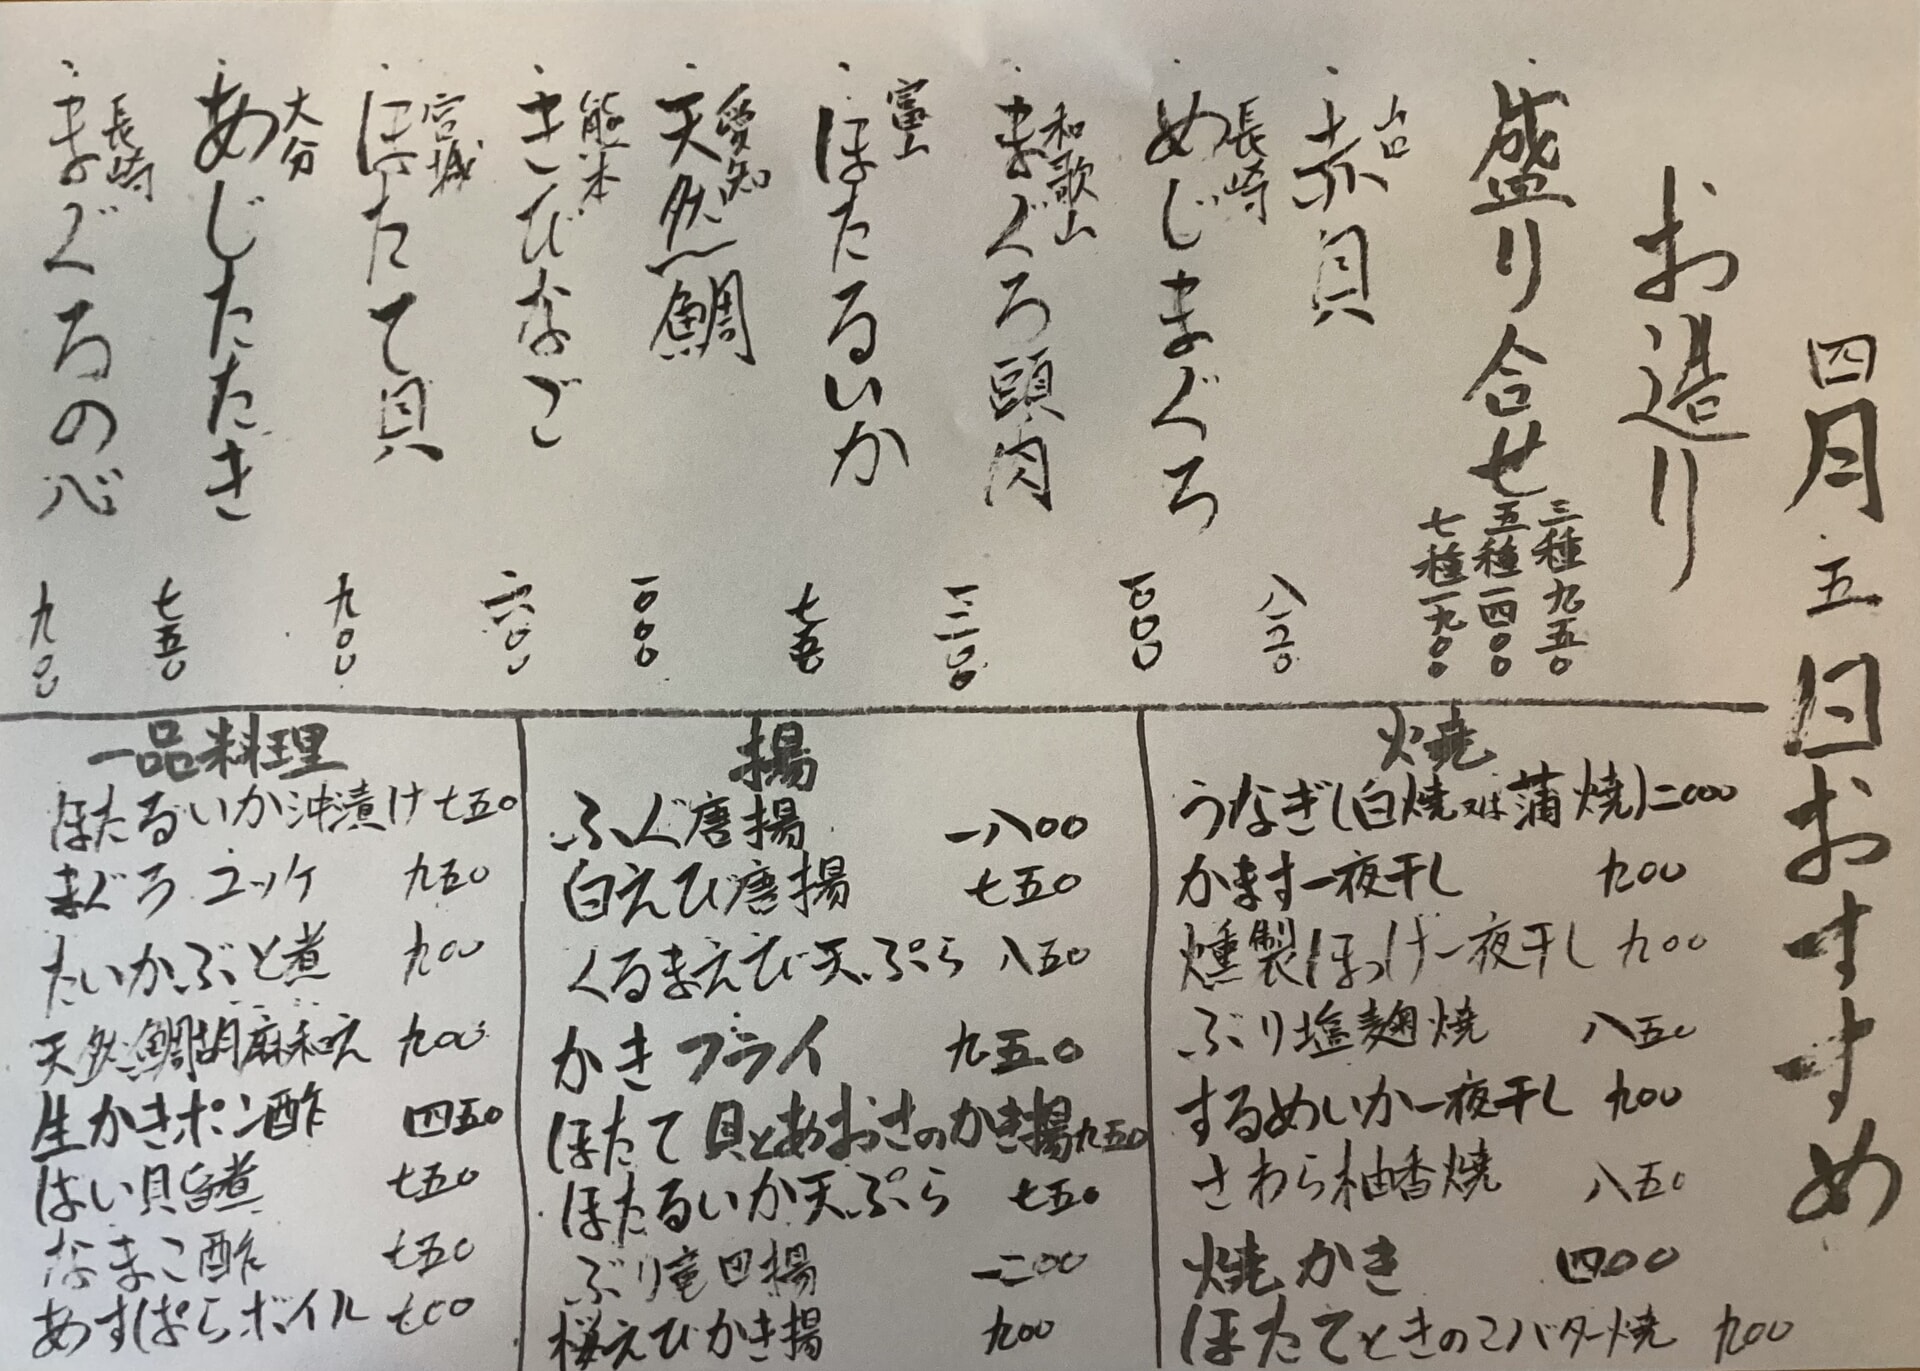 四月五日おすすめ
お造り
盛り合せ
三種九五〇
五種一四〇〇
七種一九〇〇
山口
赤貝
八二〇
長崎
めじまぐろ
一〇〇〇
和歌山
まぐろ頭肉
一二〇〇
富山
ほたるいか
七五〇
愛知
天然鯛
一〇〇〇
熊本
きびなご
六〇〇
宮城
ほたて貝
九〇〇
大分
あじたたき
七五〇
長崎
まぐろの心
九〇〇
焼
うなぎ(白焼又は蒲焼)二〇〇〇
かます一夜干し 九〇〇
燻製ほっけ一夜干し 九〇〇
ぶり塩麹焼 八五〇
するめいか一夜干し 九〇〇
さわら柚香焼 八五〇
焼かき 四〇〇
ほたてときのこバター焼 九〇〇
揚
ふぐ唐揚 一八〇〇
白えび唐揚 七五〇
くるまえび天ぷら 八五〇
かきフライ 九五〇
ほたて貝とあおさのかき揚 九五〇
ほたるいか天ぷら 七五〇
ぶり竜田揚 一二〇〇
桜えびかき揚 九〇〇
一品料理
ほたるいか沖漬け 七五〇
まぐろユッケ 九五〇
たいかぶと煮 九〇〇
天然鯛胡麻和え 九〇〇
生かきポン酢 四五〇
ばい貝旨煮 七五〇
なまこ酢 七五〇
あすぱらボイル 七〇〇